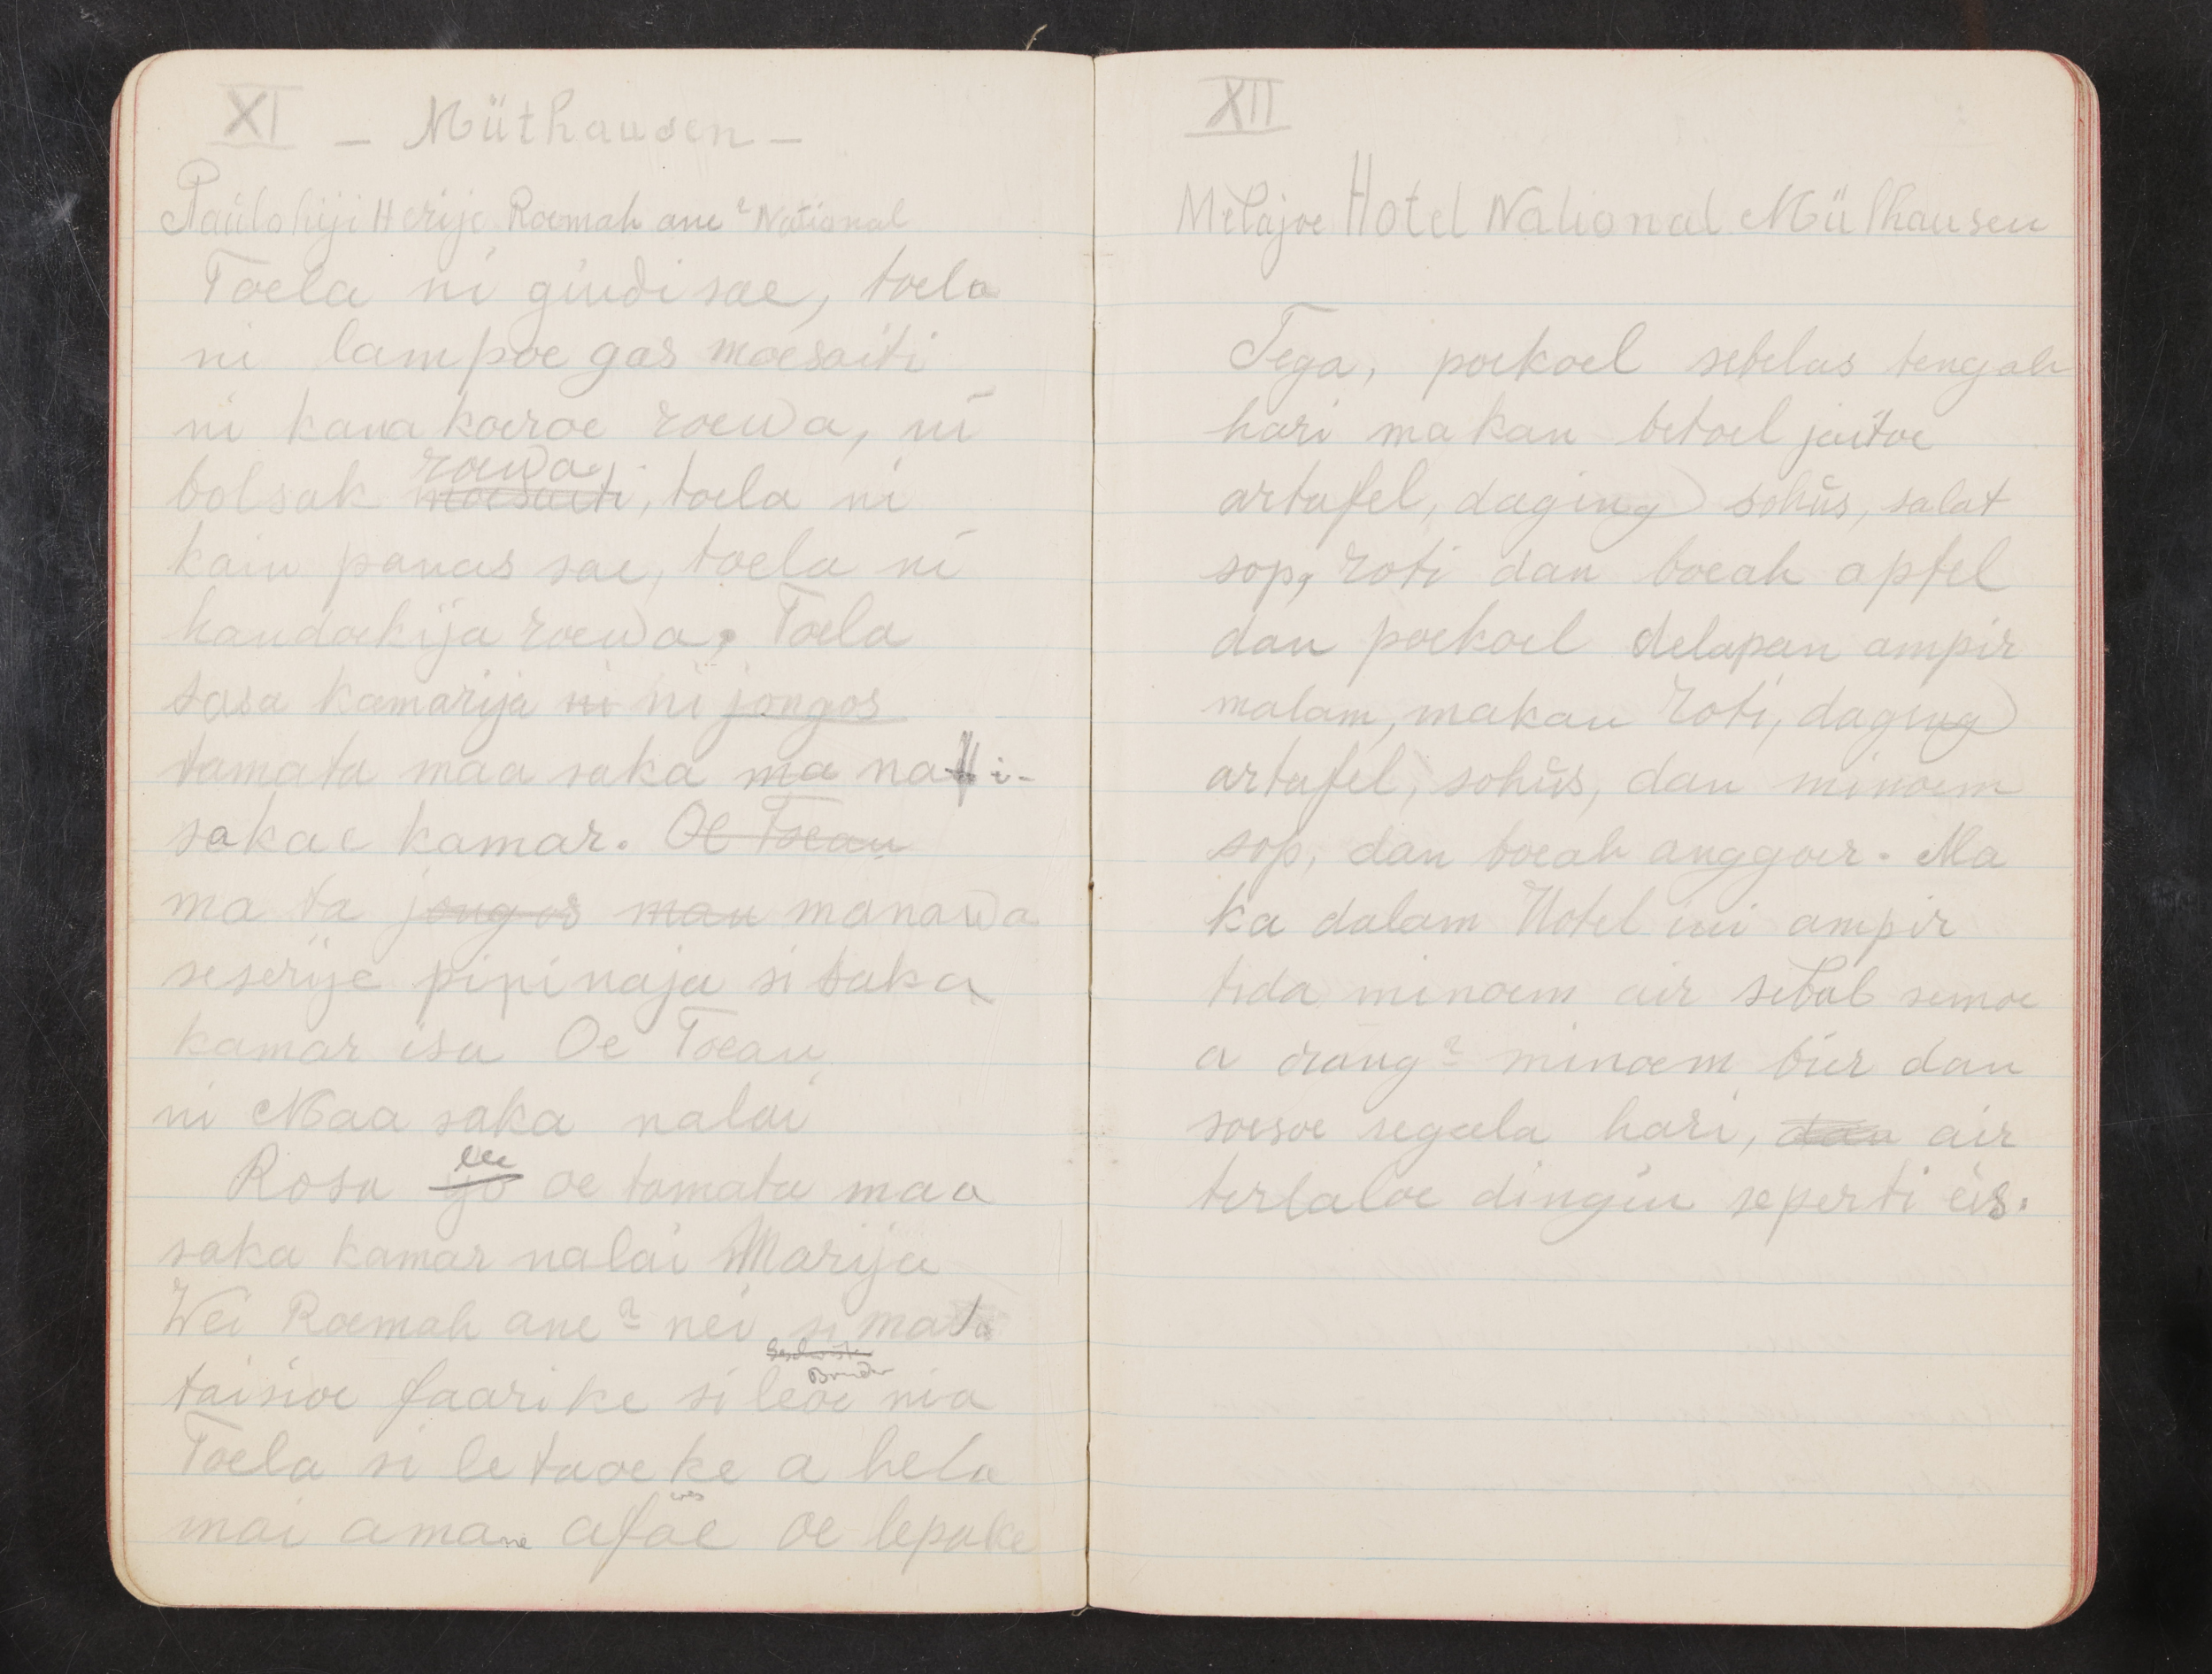 XI
— Müthausen —
Paulohiji Herije Roemah ane² National
Toela ni giudi sae, toela
ni lampoe gas moesaiti
ni kawa koeroe roewa, ni
roewa
bolsak moesaiti, toela ni
kain panas sae, toela ni
handoekija roewa, Toela
sasa kamarija ni ni jongos
tamata maa saka ma nai-
sakae kamar. Oe Toean
ma ta jongos mau manawa
seserije pipinaja si saka
kamar isa Oe Toean
ni Maa saka nalai
Rosa oe tamata maa
saka kamar nalai Marija
Wei Roemah ane² nei si mata
Bruder
taisioe faarike si leoe nia
Toela si letaoeke a hela
mai amane afoe oe lepake
XII
Melajoe Hotel National Mülhausen
Tega, poekoel sebelas tengah
hari makan betoel jaitoe
artafel, daging sohüs, salat
sop, roti dan boeah apfel
dan poekoel delapan ampir
malam, makan roti, daging
artafel, sohüs, dan minoem
sop, dan boeah anggoer. Ma
ka dalam Hotel ini ampir
tida minoem air sebab semoe
a orang² minoem bier dan
soesoe segala hari, dan air
terlaloe dingin seperti eis.